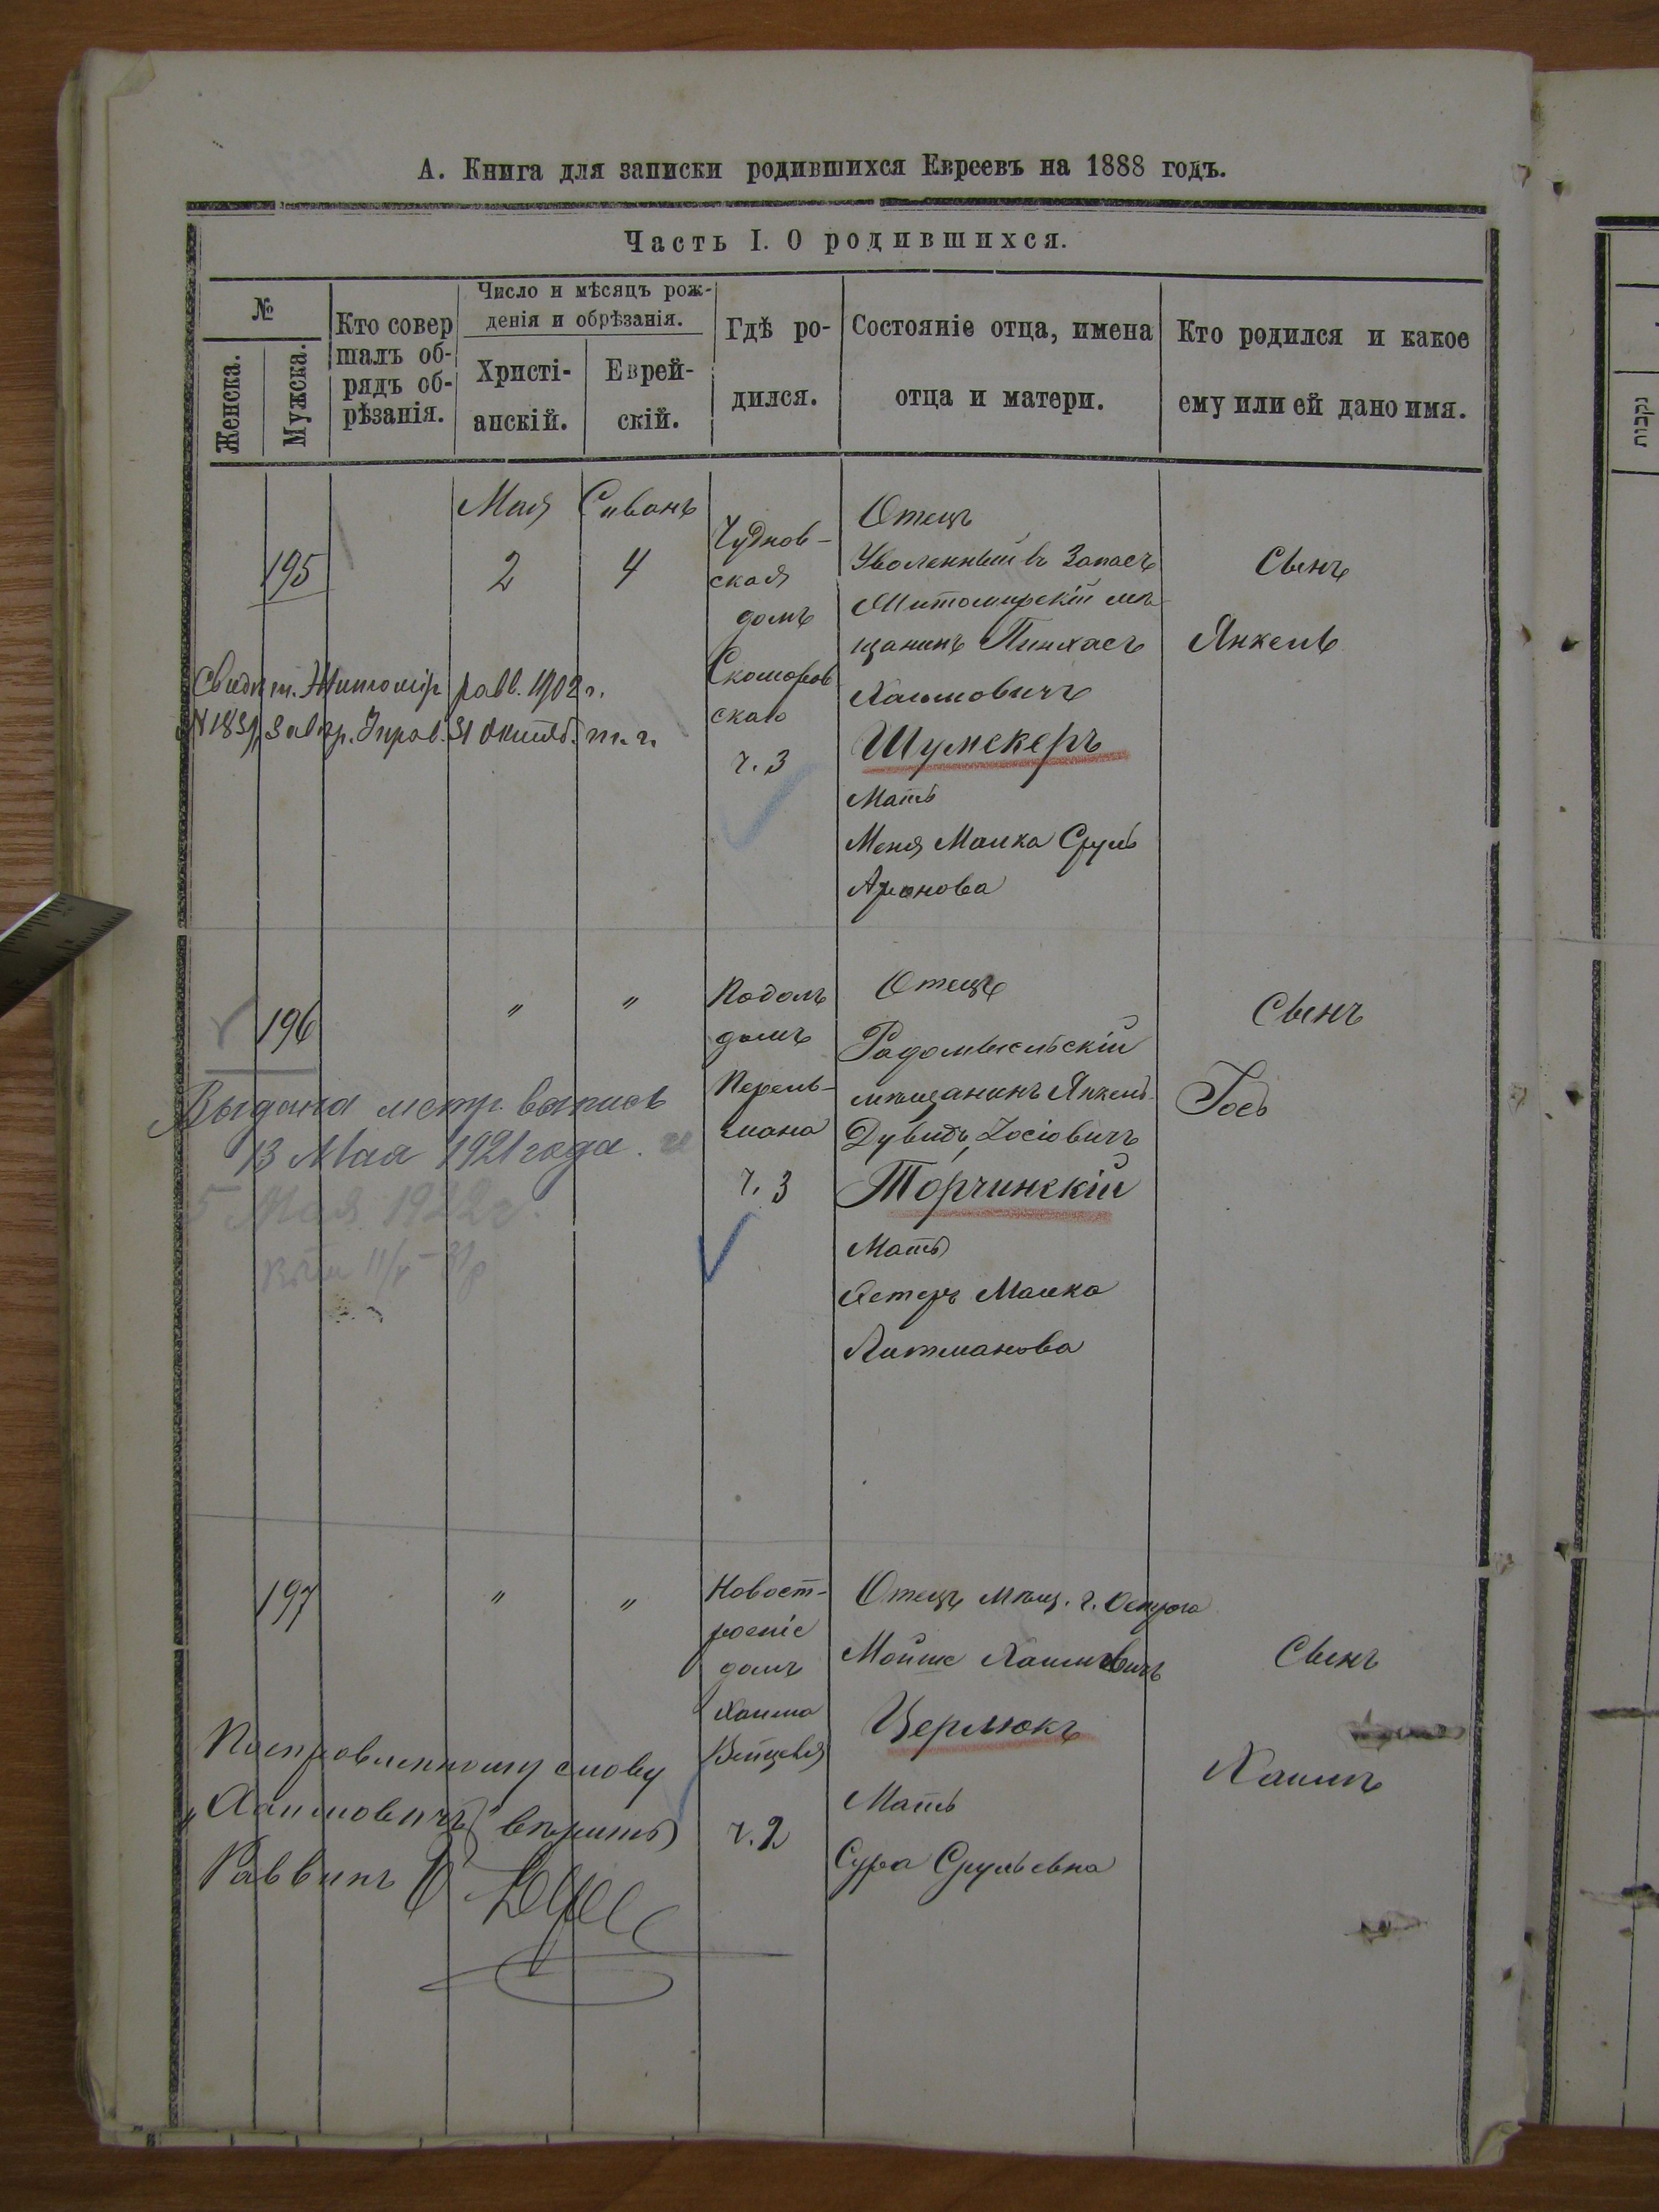 А. Книга для записки родившихся Евреевъ на 1888 годъ.
Часть I. О родившихся.
№
Женска.
Мужска.
Кто совер
шалъ об-
рядъ об-
рѣзанія.
Число и мѣсяцъ рож-
денія и обрѣзанія.
Христі-
анскій.
Еврей-
скій.
Гдѣ ро-
дился.
Состояніе отца, имена
отца и матери.
Кто родился и какое
ему или ей дано имя.
195
Мая
2
Сиванъ
4
Чуднов-
ская
домъ
Скоморов
скаго
ч. 3
Отецъ
Уволенный въ Запасъ
Житомирскій мѣ-
щанинъ Пинхасъ
Хаимовичъ
Шумскеръ
Мать
Меня Малка Сруль
Аронова
Сынъ
Янкель
Свидѣт. Житомір равв. 1902 г.
31 Октяб. т. г.
196
"
"
Подолъ
домъ
Перель-
мана
ч. 3
Отецъ
Радомысльскій
мѣщанинъ Янкель-
Дувидъ Іосіовичъ
Торчинскій
Мать
Эстеръ Малка
Литманова
Сынъ
Іось
Выдана метр. выпись
13 Мая 1921 года.
5 Мая 1922 г.
197
"
"
Новост-
роеніе
домъ
Хаима
ч. 2
Отецъ мѣщ. г. Острога
Мойше Хаимовичъ
Церлюкъ
Мать
Сура Срульевна
Сынъ
Хаимъ
Поправленному слову
„Хаимовичъ" вѣрить
Раввинъ
נקבות